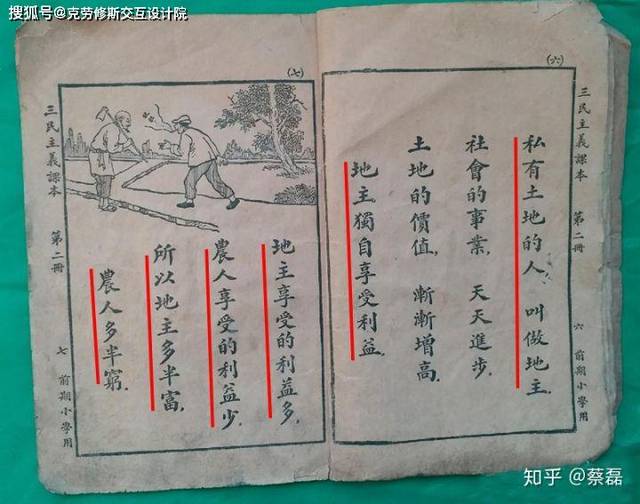 搜狐号@克劳修斯交互设计院
(六)
三民主義課本　第二冊
六　前期小學用
私有土地的人　叫做地主.
社會的事業,　天天進步.
土地的價值,　漸漸增高.
地主獨自享受利益.
(七)
三民主義課本　第二冊
七　前期小學用
地主享受的利益多.
農人享受的利益少.
所以地主多半富.
農人多半窮.
知乎 @蔡磊